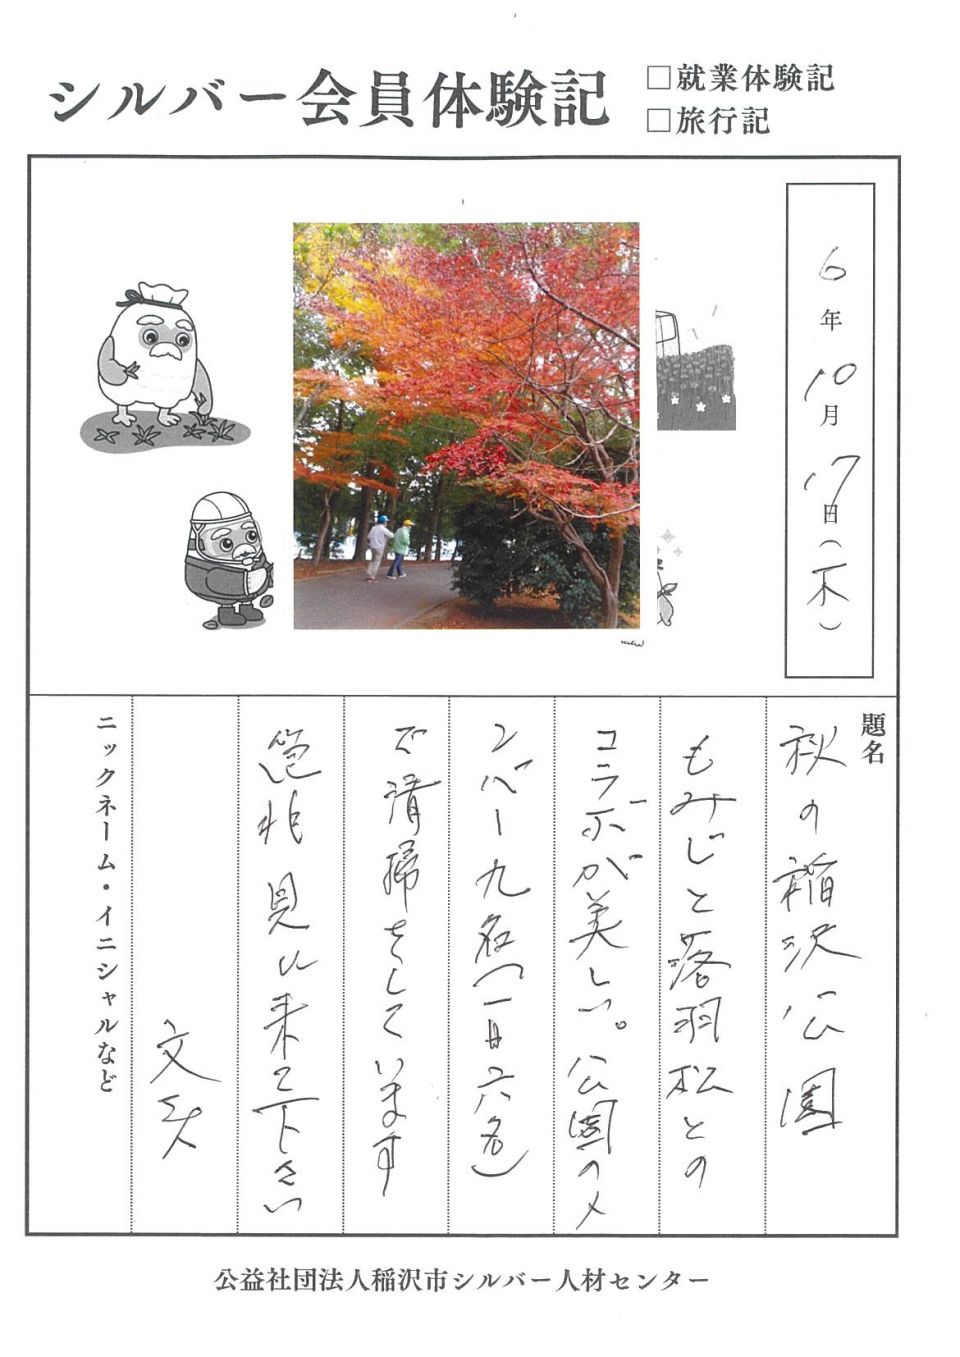 シルバー会員体験記
□就業体験記
□旅行記
6年10月17日(木)
題名
秋の稲沢公園
もみじと落羽松との
コラボが美しい。公園のメ
ンバー九名(一日六名)
で清掃をして います
是非見に来て下さい
ニックネーム・イニシャルなど
公益社団法人稲沢市シルバー人材センター